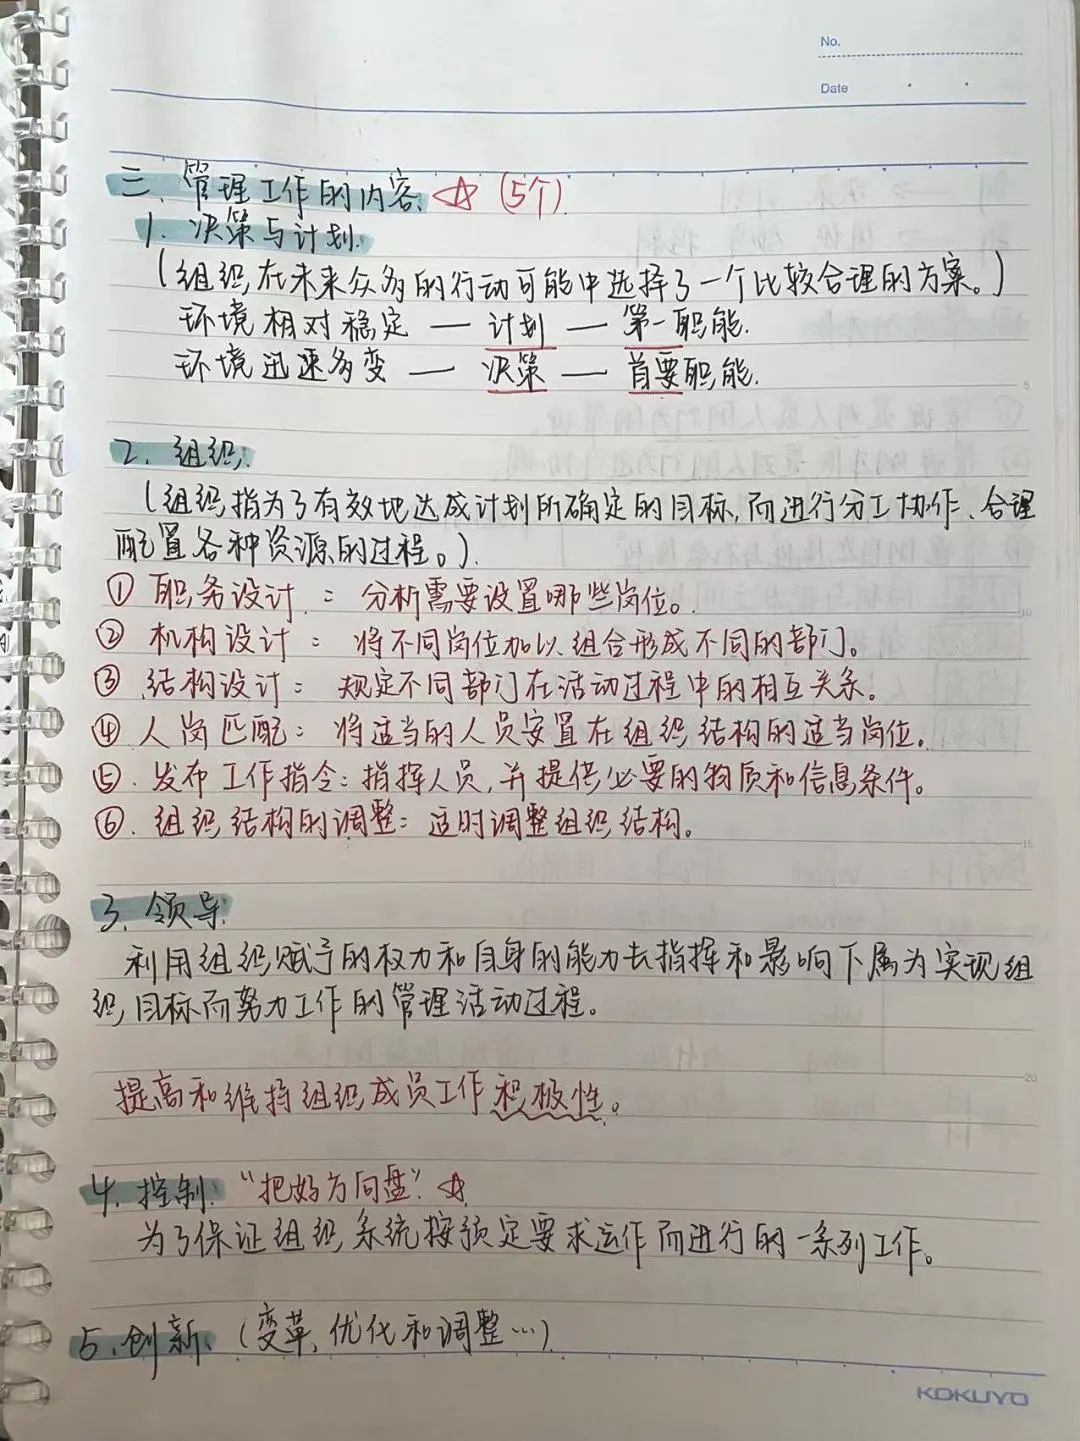 No.
Date
三、管理工作的内容 ☆ (5个)
1. 决策与计划:
(组织在未来众多的行动可能中选择了一个比较合理的方案。)
环境相对稳定 — 计划 — 第一职能.
环境迅速多变 — 决策 — 首要职能.
2. 组织:
(组织指为了有效地达成计划所确定的目标,而进行分工协作、合理
配置各种资源的过程。).
① 职务设计 : 分析需要设置哪些岗位。
② 机构设计 : 将不同岗位加以组合形成不同的部门。
③ 结构设计 : 规定不同部门在活动过程中的相互关系。
④ 人岗匹配: 将适当的人员安置在组织结构的适当岗位。
⑤. 发布工作指令: 指挥人员,并提供必要的物质和信息条件。
⑥. 组织结构的调整: 适时调整组织结构。
3. 领导:
利用组织赋予的权力和自身的能力去指挥和影响下属为实现组
织目标而努力工作的管理活动过程。
提高和维持组织成员工作积极性。
4. 控制: “把好方向盘”. ☆
为了保证组织系统按预定要求运作而进行的一系列工作。
5. 创新、(变革、优化和调整…)
KOKUYO
5
10
15
20